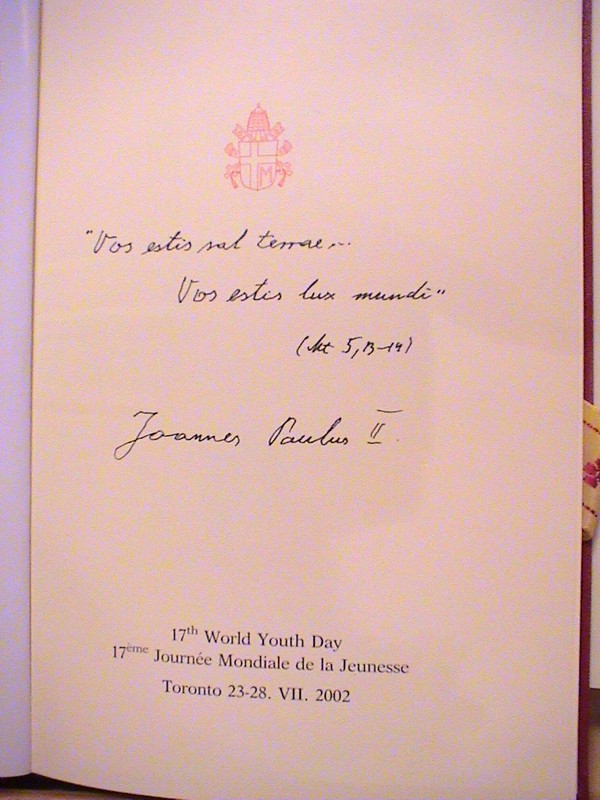 M
"Vos estis sal terrae...
Vos estis lux mundi"
(Mt 5, 13-14)
Joannes Paulus II.
17th World Youth Day
17ème Journée Mondiale de la Jeunesse
Toronto 23-28. VII. 2002